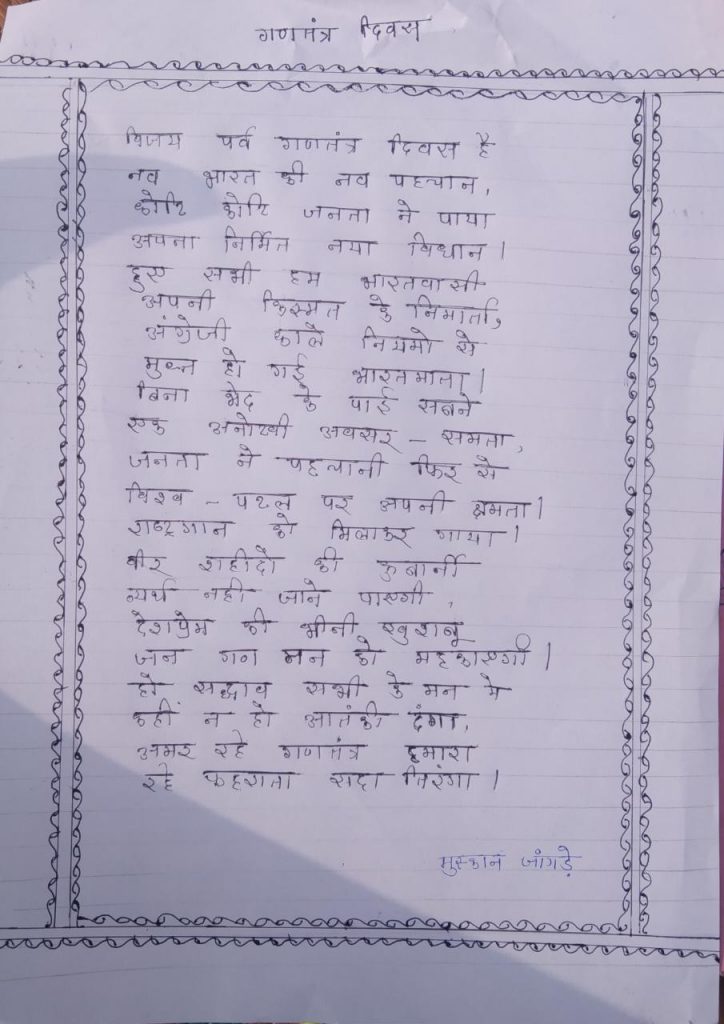 गणतंत्र दिवस
विजय पर्व गणतंत्र दिवस है
नव भारत की नव पहचान,
कोटि कोटि जनता ने पाया
अपना निर्मित नया विधान।
हुए सभी हम भारतवासी
अपनी किस्मत के निमार्ता,
अंग्रेजी काले नियमो से
मुक्त हो गई भारतमाता।
बिना भेद के पाई सबने
एक अनोखी अवसर - समता,
जनता ने पहचानी फिर से
विश्व - पटल पर अपनी क्षमता।
राष्ट्रगान को मिलाकर गाया।
वीर शहीदो की कुबार्नी
व्यर्थ नही जाने पाएगी,
देशप्रेम की भीनी खुशबू
जन गन मन को महकाएगी।
हो सद्भाव सभी के मन मे
कहीं न हो आतंकी दंगा,
अमर रहे गणतंत्र हमारा
रहे फहराता सदा तिरंगा।
मुस्कान जांगड़े